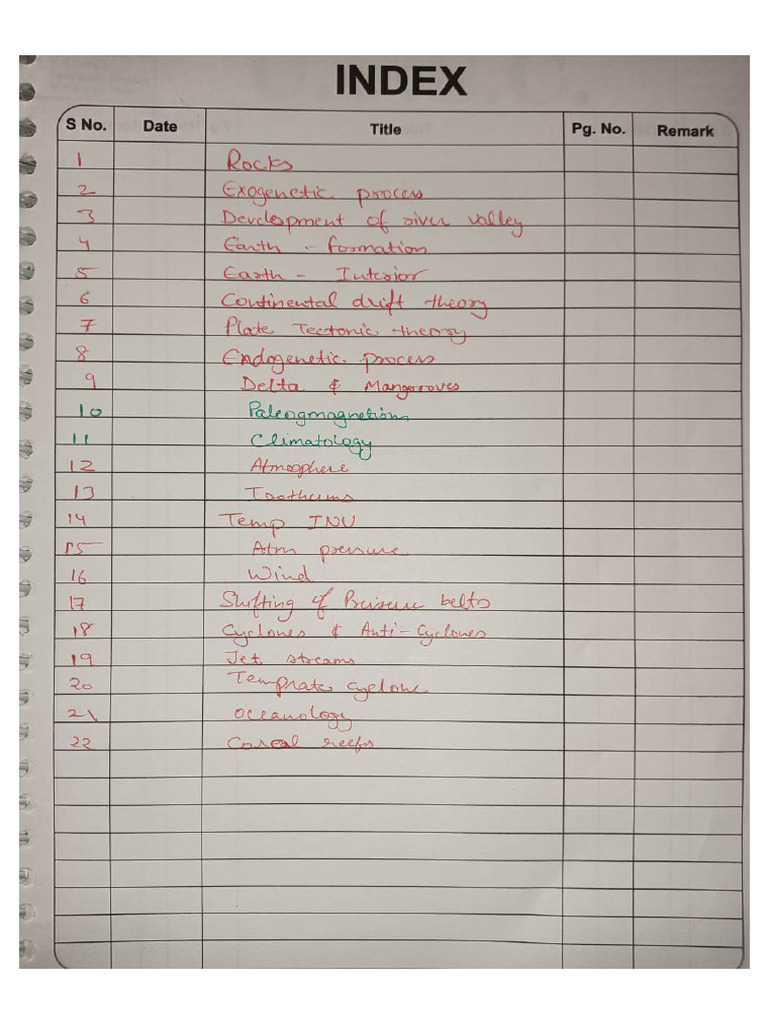 INDEX
S No. Date Title Pg. No. Remark
1 Rocks
2 Exogenetic process
3 Development of river valley
4 Earth - formation
5 Earth - Interior
6 Continental drift theory
7 Plate Tectonic theory
8 Endogenetic process
9 Delta & Mangroves
10 Paleogmagnetism
11 Climatology
12 Atmosphere
13 Isotherms
14 Temp INV
15 Atm pressure
16 Wind
17 Shifting of Pressure belts
18 Cyclones & Anti-Cyclones
19 Jet streams
20 Temprate cyclone
21 Oceanology
22 Coreal reefs